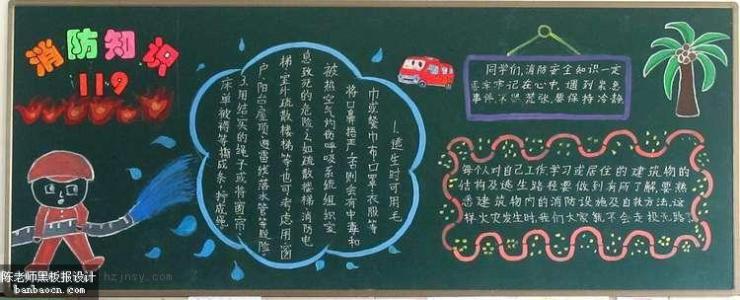 消防知识
11.9
1.逃生时可用毛
巾或餐巾布口罩、衣服等
将口鼻捂严,否则会有中毒和
被热空气灼伤呼吸系统组织窒
息致死的危险2.如疏散楼梯消防电
梯、室外疏散楼梯等也可考虑用窗
户、阳台屋顶、避雷线落水管等脱险、
3.用结实的绳子或将窗帘、
床单被褥等撕成条,拧成绳。
同学们,消防安全知识一定
要牢牢记在心中,遇到紧急
事件不 慌张,要保持冷静
每个人对自己工作学习或居住的建筑物的
结构及逃生路径要做到有所了解,要熟
悉建筑物内的消防设施及自救方法,这
样火灾发生时,我们大家就不会走投无路了
陈老师黑板报设计
banbaocn.com
hzjnsy.com